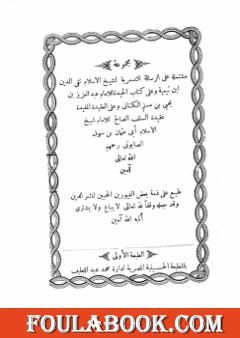 مجموعة
مشتملة على الرسالة التدمرية لشيخ الاسلام تقى الدين
ابن تيمية وعلى كتاب الحيدة للامام عبد العزيز بن
يحيى بن مسلم الكنانى وعلى العقيدة المفيدة
عقيدة السلف الصالح للامام شيخ
الاسلام أبى عثمان بن
الصابونى رحمهم
الله تعالى
آمين
طبع على ذمة بعض الغيورين المحبين لنشر الدين
وقد جعله وقفاً لله تعالى لا يباع ولا يشترى
أثابه الله آمين
الطبعة الأولى
بالمطبعة الحسينية المصرية ادارة محمد عبد اللطيف
FOULABOOK.COM